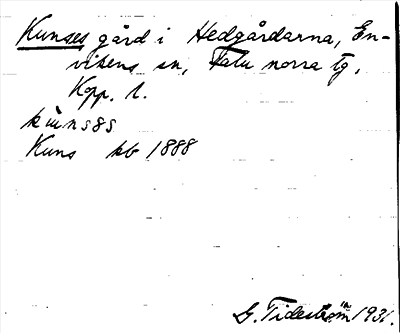 Kunses gård i Hedgårdarna, En-
vikens sn, Falu norra tg,
Kopp. l.
Kuns kb 1888
G. Tideström 1931.